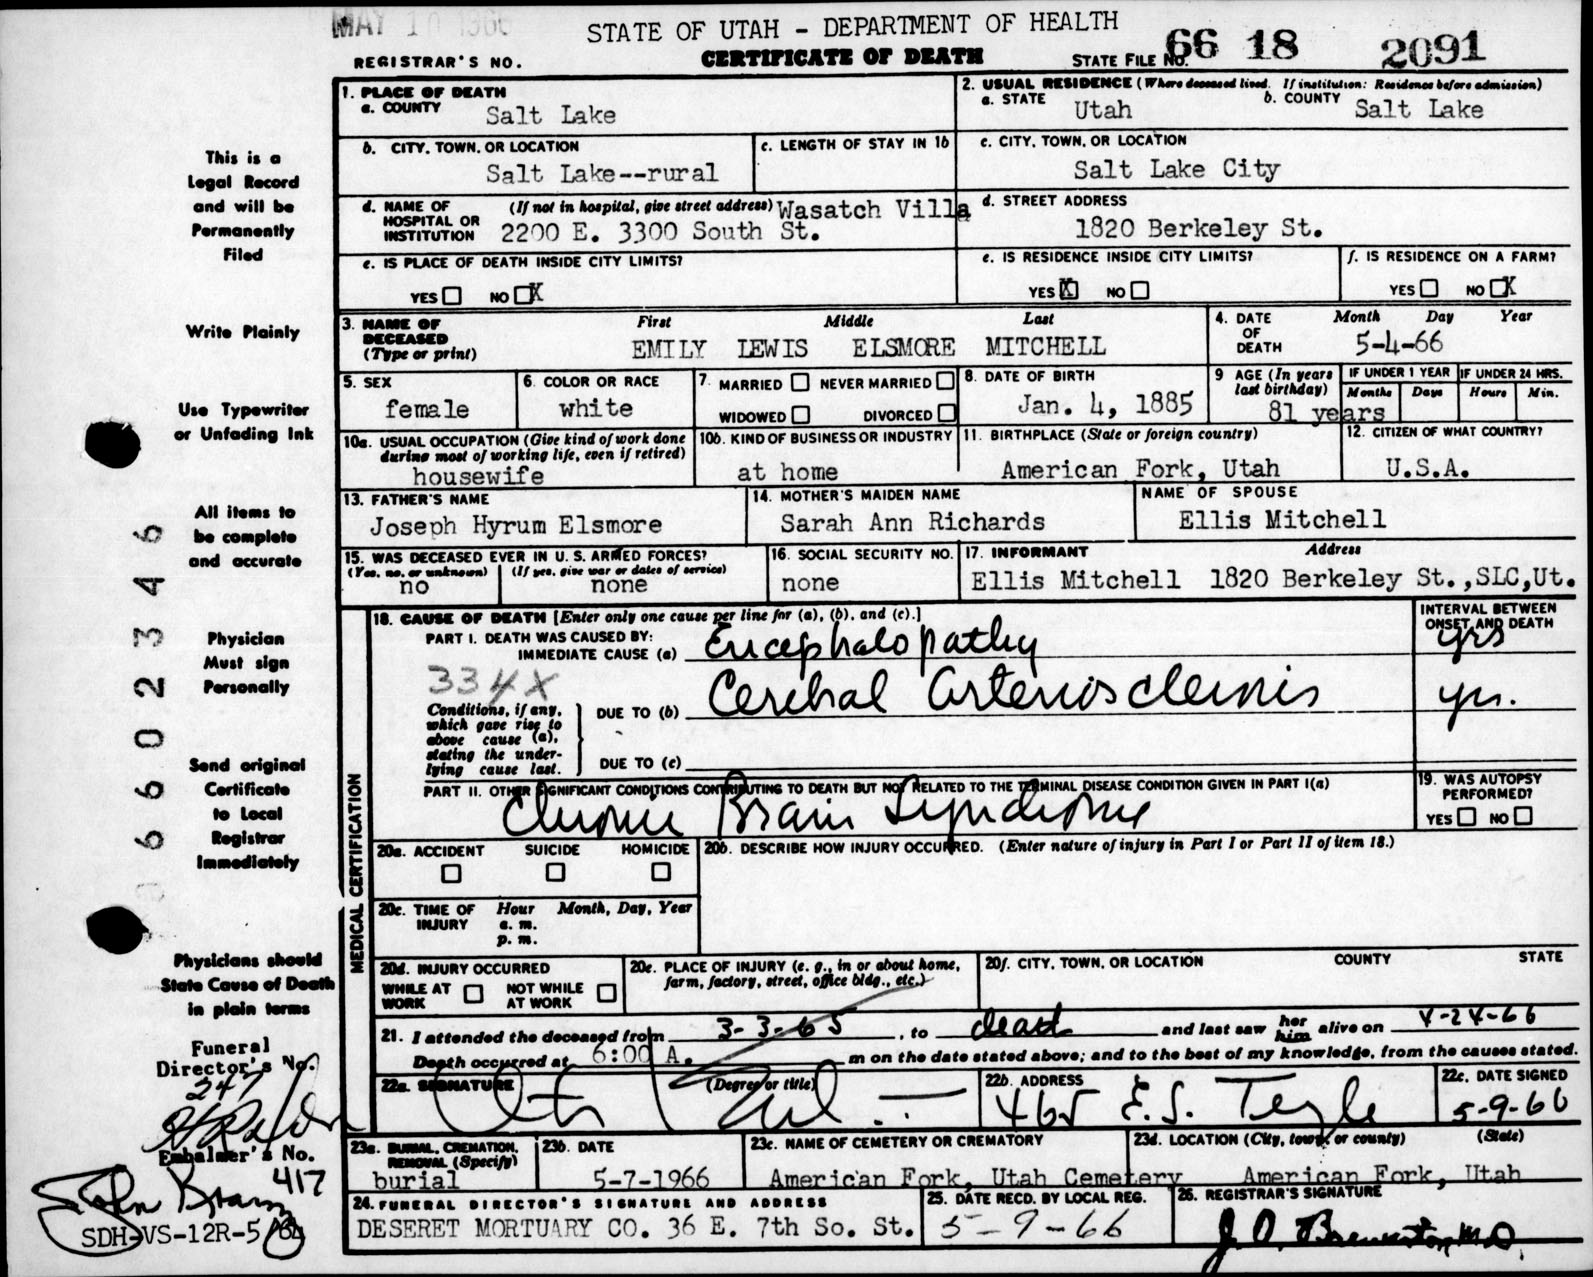 MAY 10 1966
STATE OF UTAH - DEPARTMENT OF HEALTH
REGISTRAR'S NO.
CERTIFICATE OF DEATH
STATE FILE NO. 66 18 2091
1. PLACE OF DEATH
a. COUNTY Salt Lake
2. USUAL RESIDENCE (Where deceased lived. If institution: Residence before admission)
a. STATE Utah b. COUNTY Salt Lake
b. CITY, TOWN, OR LOCATION Salt Lake--rural
c. LENGTH OF STAY IN 1b
c. CITY, TOWN, OR LOCATION Salt Lake City
d. NAME OF HOSPITAL OR INSTITUTION (If not in hospital, give street address) Wasatch Villa
2200 E. 3300 South St.
d. STREET ADDRESS 1820 Berkeley St.
e. IS PLACE OF DEATH INSIDE CITY LIMITS?
YES NO X
e. IS RESIDENCE INSIDE CITY LIMITS?
YES X NO
f. IS RESIDENCE ON A FARM?
YES NO X
3. NAME OF DECEASED (Type or print)
First Middle Last
EMILY LEWIS ELSMORE MITCHELL
4. DATE OF DEATH Month Day Year
5-4-66
5. SEX female
6. COLOR OR RACE white
7. MARRIED NEVER MARRIED
WIDOWED DIVORCED
8. DATE OF BIRTH Jan. 4, 1885
9 AGE (In years last birthday) 81 years
IF UNDER 1 YEAR Months Days
IF UNDER 24 HRS. Hours Min.
10a. USUAL OCCUPATION (Give kind of work done during most of working life, even if retired)
housewife
10b. KIND OF BUSINESS OR INDUSTRY
at home
11. BIRTHPLACE (State or foreign country)
American Fork, Utah
12. CITIZEN OF WHAT COUNTRY?
U.S.A.
13. FATHER'S NAME
Joseph Hyrum Elsmore
14. MOTHER'S MAIDEN NAME
Sarah Ann Richards
NAME OF SPOUSE
Ellis Mitchell
15. WAS DECEASED EVER IN U.S. ARMED FORCES?
(Yes, no, or unknown) (If yes, give war or dates of service)
no none
16. SOCIAL SECURITY NO.
none
17. INFORMANT Address
Ellis Mitchell 1820 Berkeley St.,SLC,Ut.
MEDICAL CERTIFICATION
18. CAUSE OF DEATH [Enter only one cause per line for (a), (b), and (c).]
PART I. DEATH WAS CAUSED BY:
IMMEDIATE CAUSE (a) Encephalopathy
INTERVAL BETWEEN ONSET AND DEATH
yrs
334X
Conditions, if any, which gave rise to above cause (a), stating the underlying cause last.
DUE TO (b) Cerebral Arteriosclerosis
yrs.
DUE TO (c)
PART II. OTHER SIGNIFICANT CONDITIONS CONTRIBUTING TO DEATH BUT NOT RELATED TO THE TERMINAL DISEASE CONDITION GIVEN IN PART I(a)
Chronic Brain Syndrome
19. WAS AUTOPSY PERFORMED?
YES NO
20a. ACCIDENT SUICIDE HOMICIDE
20b. DESCRIBE HOW INJURY OCCURRED. (Enter nature of injury in Part I or Part II of item 18.)
20c. TIME OF INJURY Hour Month, Day, Year
a. m.
p. m.
20d. INJURY OCCURRED
WHILE AT WORK NOT WHILE AT WORK
20e. PLACE OF INJURY (e. g., in or about home, farm, factory, street, office bldg., etc.)
20f. CITY, TOWN, OR LOCATION COUNTY STATE
21. I attended the deceased from 3-3-65, to death and last saw her him alive on 4-24-66
Death occurred at 6:00 A. m on the date stated above; and to the best of my knowledge, from the causes stated.
22a. SIGNATURE (Degree or title)
22b. ADDRESS
465 E.S. Temple
22c. DATE SIGNED
5-9-66
23a. BURIAL, CREMATION, REMOVAL (Specify)
burial
23b. DATE
5-7-1966
23c. NAME OF CEMETERY OR CREMATORY
American Fork, Utah Cemetery
23d. LOCATION (City, town, or county) (State)
American Fork, Utah
24. FUNERAL DIRECTOR'S SIGNATURE AND ADDRESS
DESERET MORTUARY CO. 36 E. 7th So. St.
25. DATE RECD. BY LOCAL REG.
5-9-66
26. REGISTRAR'S SIGNATURE
This is a
Legal Record
and will be
Permanently
Filed
Write Plainly
Use Typewriter
or Unfading Ink
All items to
be complete
and accurate
Physician
Must sign
Personally
Send original
Certificate
to Local
Registrar
Immediately
Physicians should
State Cause of Death
in plain terms
Funeral
Director's No.
247
Embalmer's No.
417
SDH-VS-12R-5/64
6602346